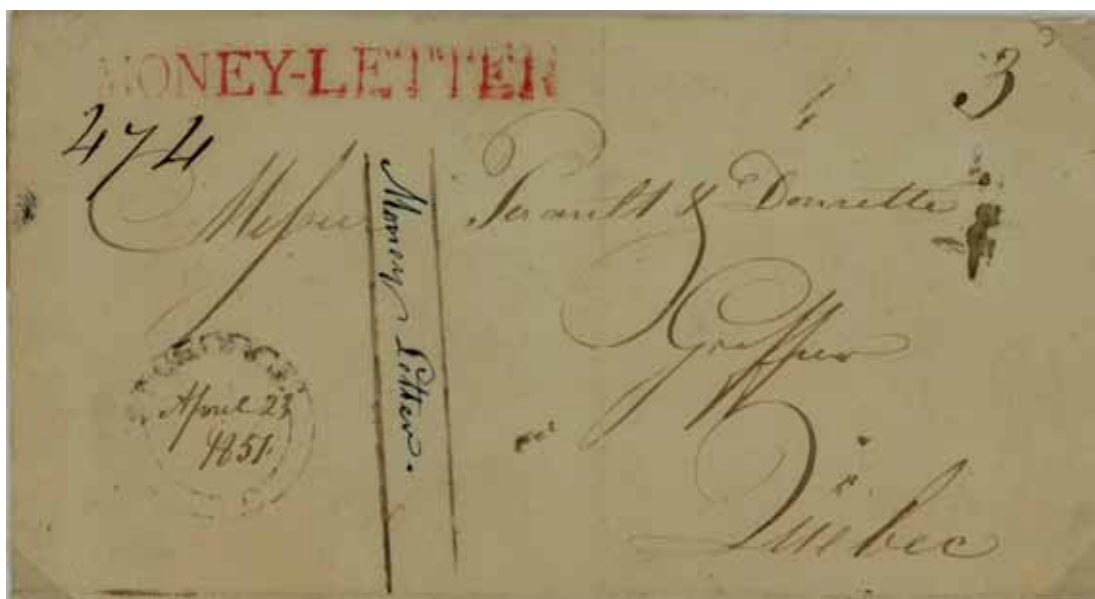 MONEY-LETTER
3
474
Messrs Perault & Doucette
Money Letter.
Greffier
April 23
1851
Québec